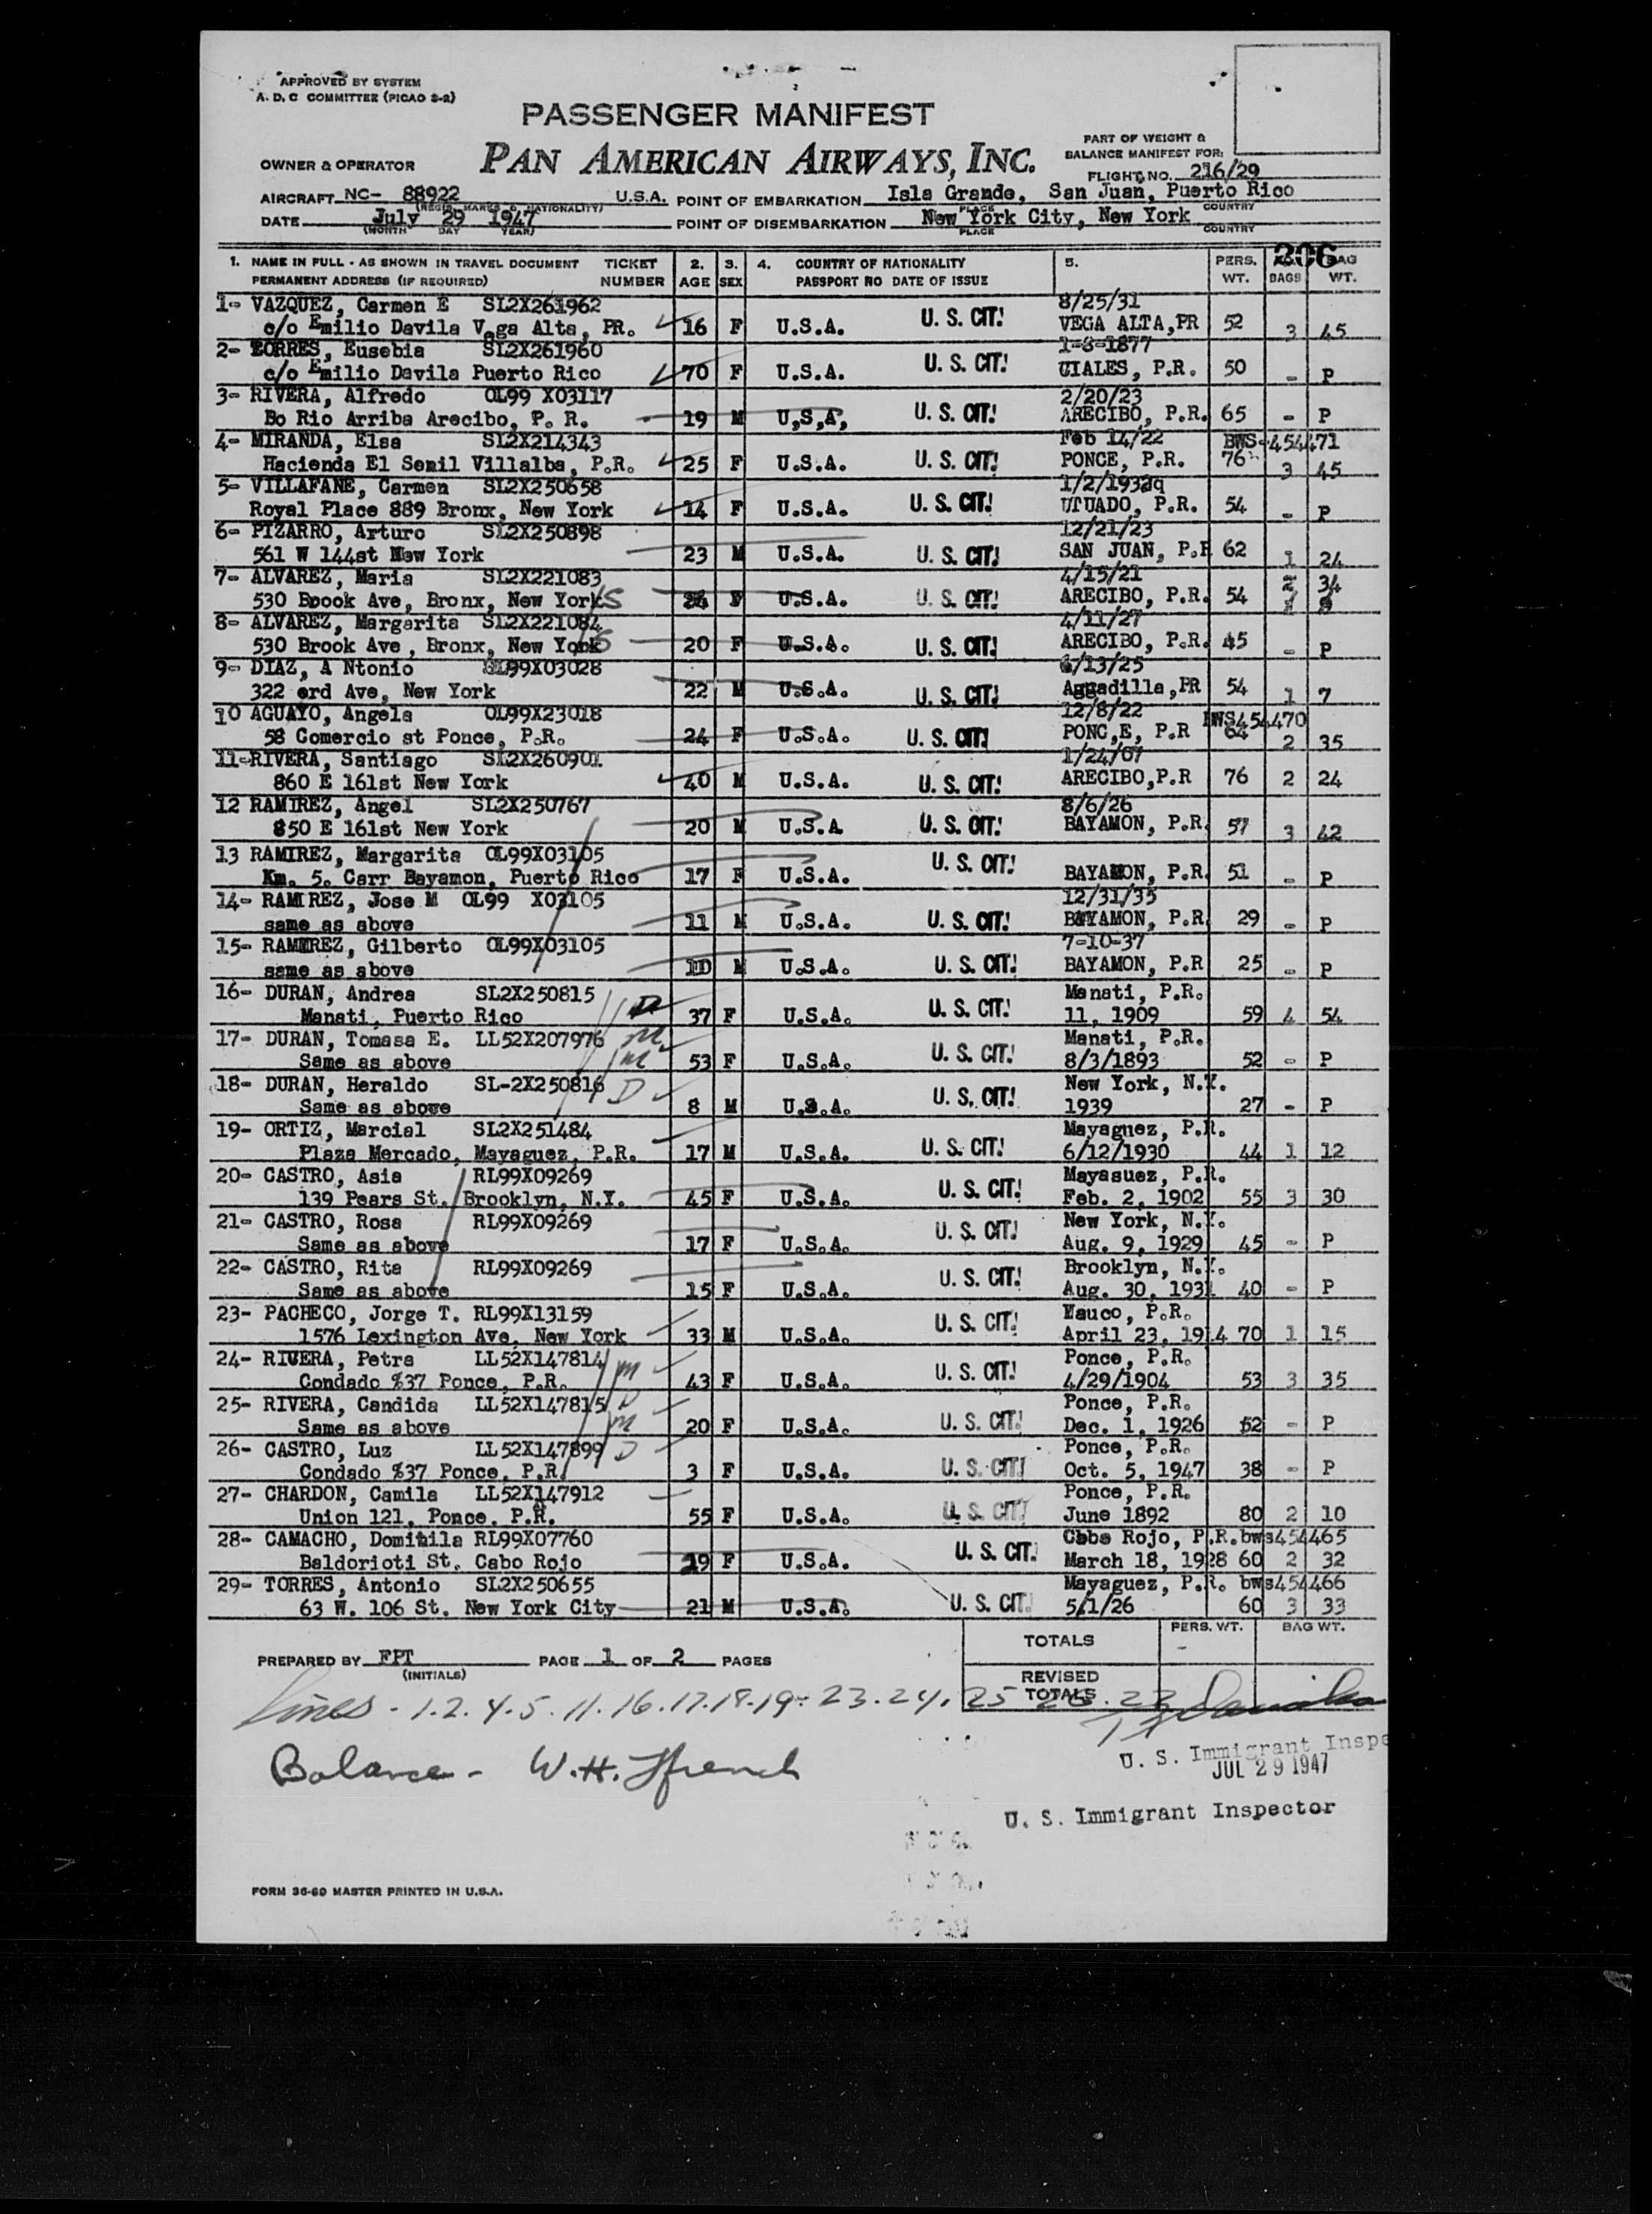 APPROVED BY SYSTEM
A. D. C COMMITTEE (PICAO S-2)
PASSENGER MANIFEST
PART OF WEIGHT &
BALANCE MANIFEST FOR:
OWNER & OPERATOR PAN AMERICAN AIRWAYS, INC.
FLIGHT NO. 216/29
AIRCRAFT NC- 88922 U.S.A. POINT OF EMBARKATION Isla Grande, San Juan, Puerto Rico
(REGIS. MARKS & NATIONALITY) PLACE COUNTRY
DATE July 29 1947 POINT OF DISEMBARKATION New York City, New York
(MONTH DAY YEAR) PLACE COUNTRY
206
1. NAME IN FULL - AS SHOWN IN TRAVEL DOCUMENT TICKET 2. 3. 4. COUNTRY OF NATIONALITY 5. PERS. BAG
PERMANENT ADDRESS (IF REQUIRED) NUMBER AGE SEX PASSPORT NO DATE OF ISSUE WT. BAGS WT.
1- VAZQUEZ, Carmen E SL2X261962 8/25/31
c/o Emilio Davila Vega Alta, PR. 16 F U.S.A. U. S. CIT. VEGA ALTA,PR 52 3 45
2- TORRES, Eusebia SL2X261960 1-8-1877
c/o Emilio Davila Puerto Rico 70 F U.S.A. U. S. CIT. UIALES, P.R. 50 - P
3- RIVERA, Alfredo OL99 X03117 2/20/23
Bo Rio Arriba Arecibo, P. R. 19 M U,S,A, U. S. CIT. ARECIBO, P.R. 65 - P
4- MIRANDA, Elsa SL2X214343 Feb 14/22 BWS-454471
Hacienda El Semil Villalba, P.R. 25 F U.S.A. U. S. CIT. PONCE, P.R. 76 3 45
5- VILLAFANE, Carmen SL2X250658
Royal Place 889 Bronx, New York 14 F U.S.A. U. S. CIT. UTUADO, P.R. 54 - P
6- PIZARRO, Arturo SL2X250898 12/21/23
561 W 144st New York 23 M U.S.A. U. S. CIT. SAN JUAN, P.R 62 1 24
7- ALVAREZ, Maria SL2X221083 4/15/21 2 34
530 Brook Ave, Bronx, New York 26 F U.S.A. U. S. CIT. ARECIBO, P.R. 54
8- ALVAREZ, Margarita SL2X221084 4/11/27
530 Brook Ave , Bronx, New York 20 F U.S.A. U. S. CIT. ARECIBO, P.R. 45 - P
9- DIAZ, A Ntonio 99X03028 /13/25
322 erd Ave, New York 22 M U.S.A. U. S. CIT. Aggadilla,PR 54 1 7
10 AGUAYO, Angela OL99X23018 12/8/22 BWS454470
58 Comercio st Ponce, P.R. 24 F U.S.A. U. S. CIT. PONC,E, P.R 64 2 35
11-RIVERA, Santiago SL2X260901 1/24/07
860 E 161st New York 40 M U.S.A. U. S. CIT. ARECIBO,P.R 76 2 24
12 RAMIREZ, Angel SL2X250767 8/6/26
850 E 161st New York 20 M U.S.A U. S. CIT. BAYAMON, P.R. 57 3 42
13 RAMIREZ, Margarita OL99X03105
Km. 5. Carr Bayamon, Puerto Rico 17 F U.S.A. U. S. CIT. BAYAMON, P.R. 51 - P
14- RAMIREZ, Jose M OL99 X03105 12/31/35
same as above 11 M U.S.A. U. S. CIT. BAYAMON, P.R. 29 - P
15- RAMIREZ, Gilberto OL99X03105 7-10-37
same as above 10 M U.S.A. U. S. CIT. BAYAMON, P.R 25 - P
16- DURAN, Andrea SL2X250815 D Manati, P.R.
Manati, Puerto Rico 37 F U.S.A. U. S. CIT. 11, 1909 59 4 54
17- DURAN, Tomasa E. LL52X207976 M Manati, P.R.
Same as above M 53 F U.S.A. U. S. CIT. 8/3/1893 52 - P
18- DURAN, Heraldo SL-2X250816 D New York, N.Y.
Same as above 8 M U.S.A. U. S. CIT. 1939 27 - P
19- ORTIZ, Marcial SL2X251484 Mayaguez, P.R.
Plaza Mercado, Mayaguez, P.R. 17 M U.S.A. U. S. CIT. 6/12/1930 44 1 12
20- CASTRO, Asia RL99X09269 Mayasuez, P.R.
139 Pears St. Brooklyn, N.Y. 45 F U.S.A. U. S. CIT. Feb. 2, 1902 55 3 30
21- CASTRO, Rosa RL99X09269 New York, N.Y.
Same as above 17 F U.S.A. U. S. CIT. Aug. 9, 1929 45 - P
22- CASTRO, Rita RL99X09269 Brooklyn, N.Y.
Same as above 15 F U.S.A. U. S. CIT. Aug. 30, 1931 40 - P
23- PACHECO, Jorge T. RL99X13159 Yauco, P.R.
1576 Lexington Ave, New York 33 M U.S.A. U. S. CIT. April 23, 1914 70 1 15
24- RIVERA, Petra LL52X147814 M Ponce, P.R.
Condado %37 Ponce, P.R. 43 F U.S.A. U. S. CIT. 4/29/1904 53 3 35
25- RIVERA, Candida LL52X147815 D Ponce, P.R.
Same as above M 20 F U.S.A. U. S. CIT. Dec. 1, 1926 52 - P
26- CASTRO, Luz LL52X147899 D Ponce, P.R.
Condado %37 Ponce, P.R. 3 F U.S.A. U. S. CIT. Oct. 5, 1947 38 - P
27- CHARDON, Camila LL52X147912 Ponce, P.R.
Union 121, Ponce, P.R. 55 F U.S.A. U. S. CIT. June 1892 80 2 10
28- CAMACHO, Domitila RL99X07760 Cabo Rojo, P.R. bws454465
Baldorioti St. Cabo Rojo 19 F U.S.A. U. S. CIT. March 18, 1928 60 2 32
29- TORRES, Antonio SL2X250655 Mayaguez, P.R. bws454466
63 W. 106 St. New York City 21 M U.S.A. U. S. CIT. 5/1/26 60 3 33
TOTALS PERS. WT. BAG WT.
PREPARED BY FPT PAGE 1 OF 2 PAGES
(INITIALS)
REVISED
TOTALS
Lines - 1.2.4.5.11.16.17.18.19- 23.24. 25
Balance - W.H. Ffrench
U. S. Immigrant Inspe
JUL 29 1947
U. S. Immigrant Inspector
FORM 36-60 MASTER PRINTED IN U.S.A.